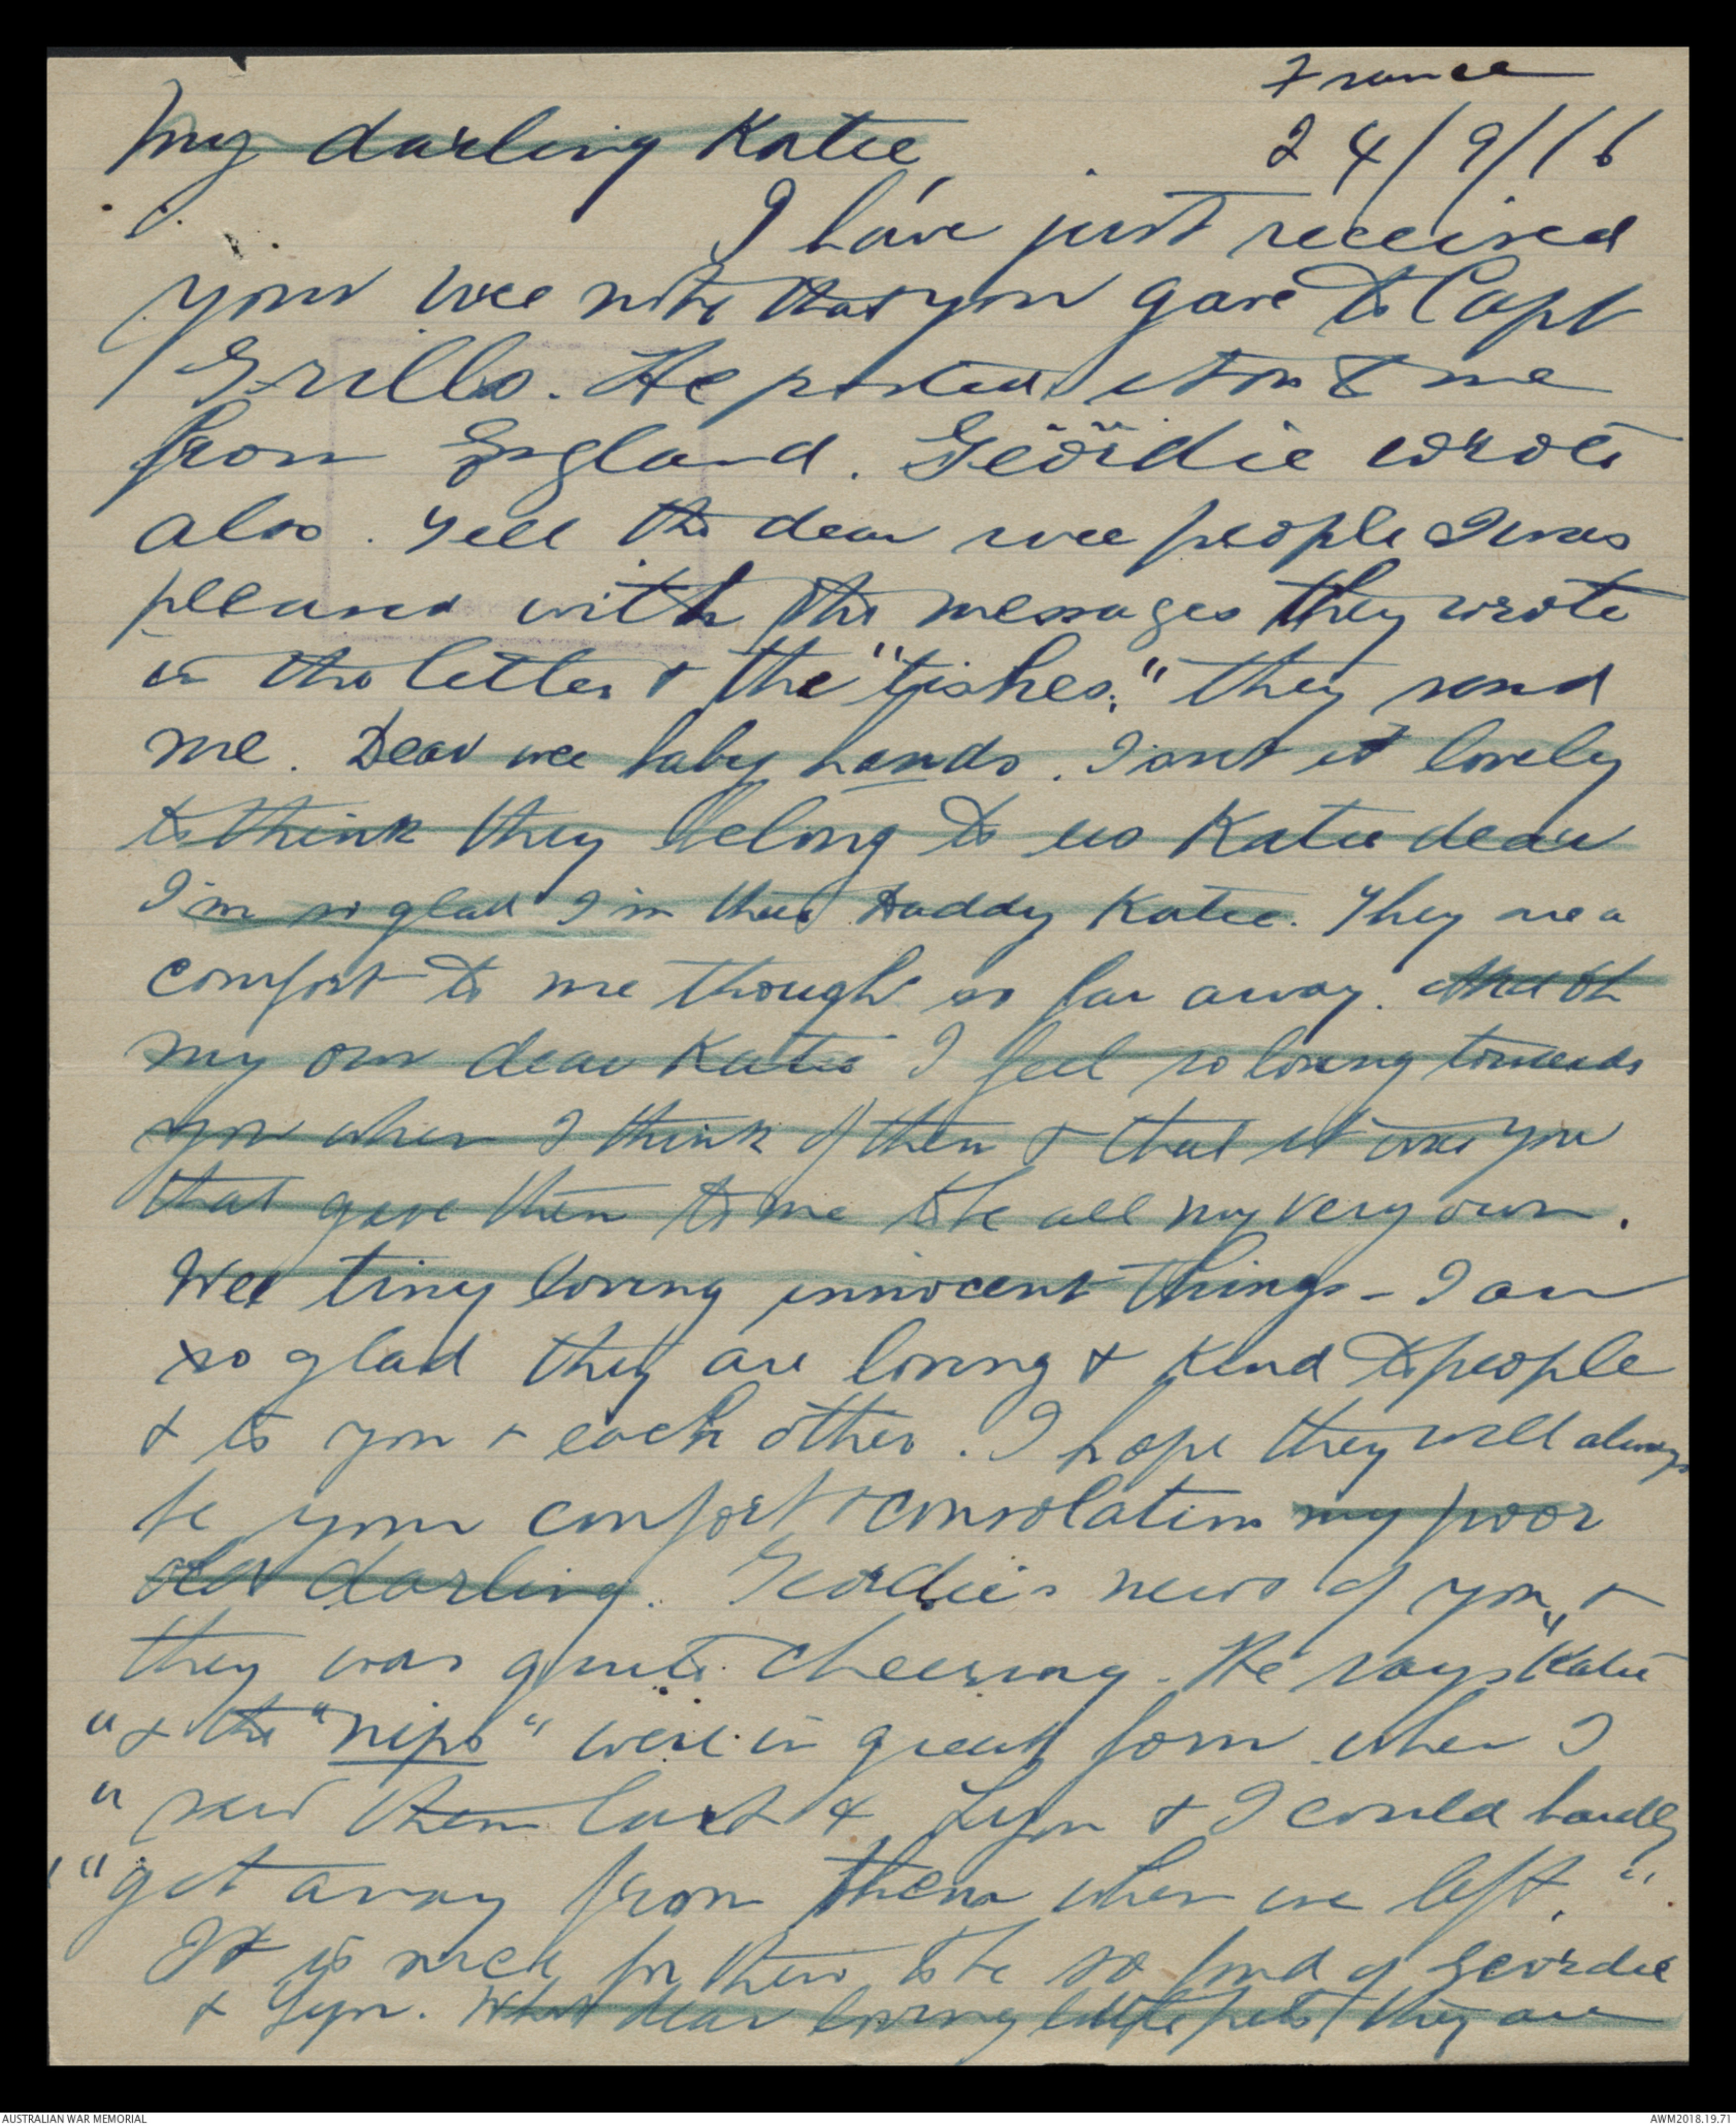 France
My darling Katie 24/9/16
I have just received
your wee note that you gave to Capt
Grills. He posted it on to me
from England. Geordie wrote
also. Tell the dear wee people I was
pleased with the messages they wrote
in the letter & the "tishes." they send
me. Dear wee baby hands. Isnt it lovely
to think they belong to us Katie dear
I'm so glad I'm their Daddy Katie. They are a
comfort to me though so far away. And oh
my own dear Katie I feel so loving towards
you when I think of them & that it was you
that gave them to me to be all my very own.
Wee tiny loving innocent things - I am
so glad they are loving & kind to people
& to you & each other. I hope they will always
be your comfort & consolation my poor
old darling. Geordie's news of you &
they was quite cheering. He says "Katie
" & the "nips" were in great form when I
" saw them last & Lyn & I could hardly
" get away from them when we left."
It is nice for them to be so fond of Geordie
& Lyn. What dear loving little pets they are
AUSTRALIAN WAR MEMORIAL AWM2018.19.71